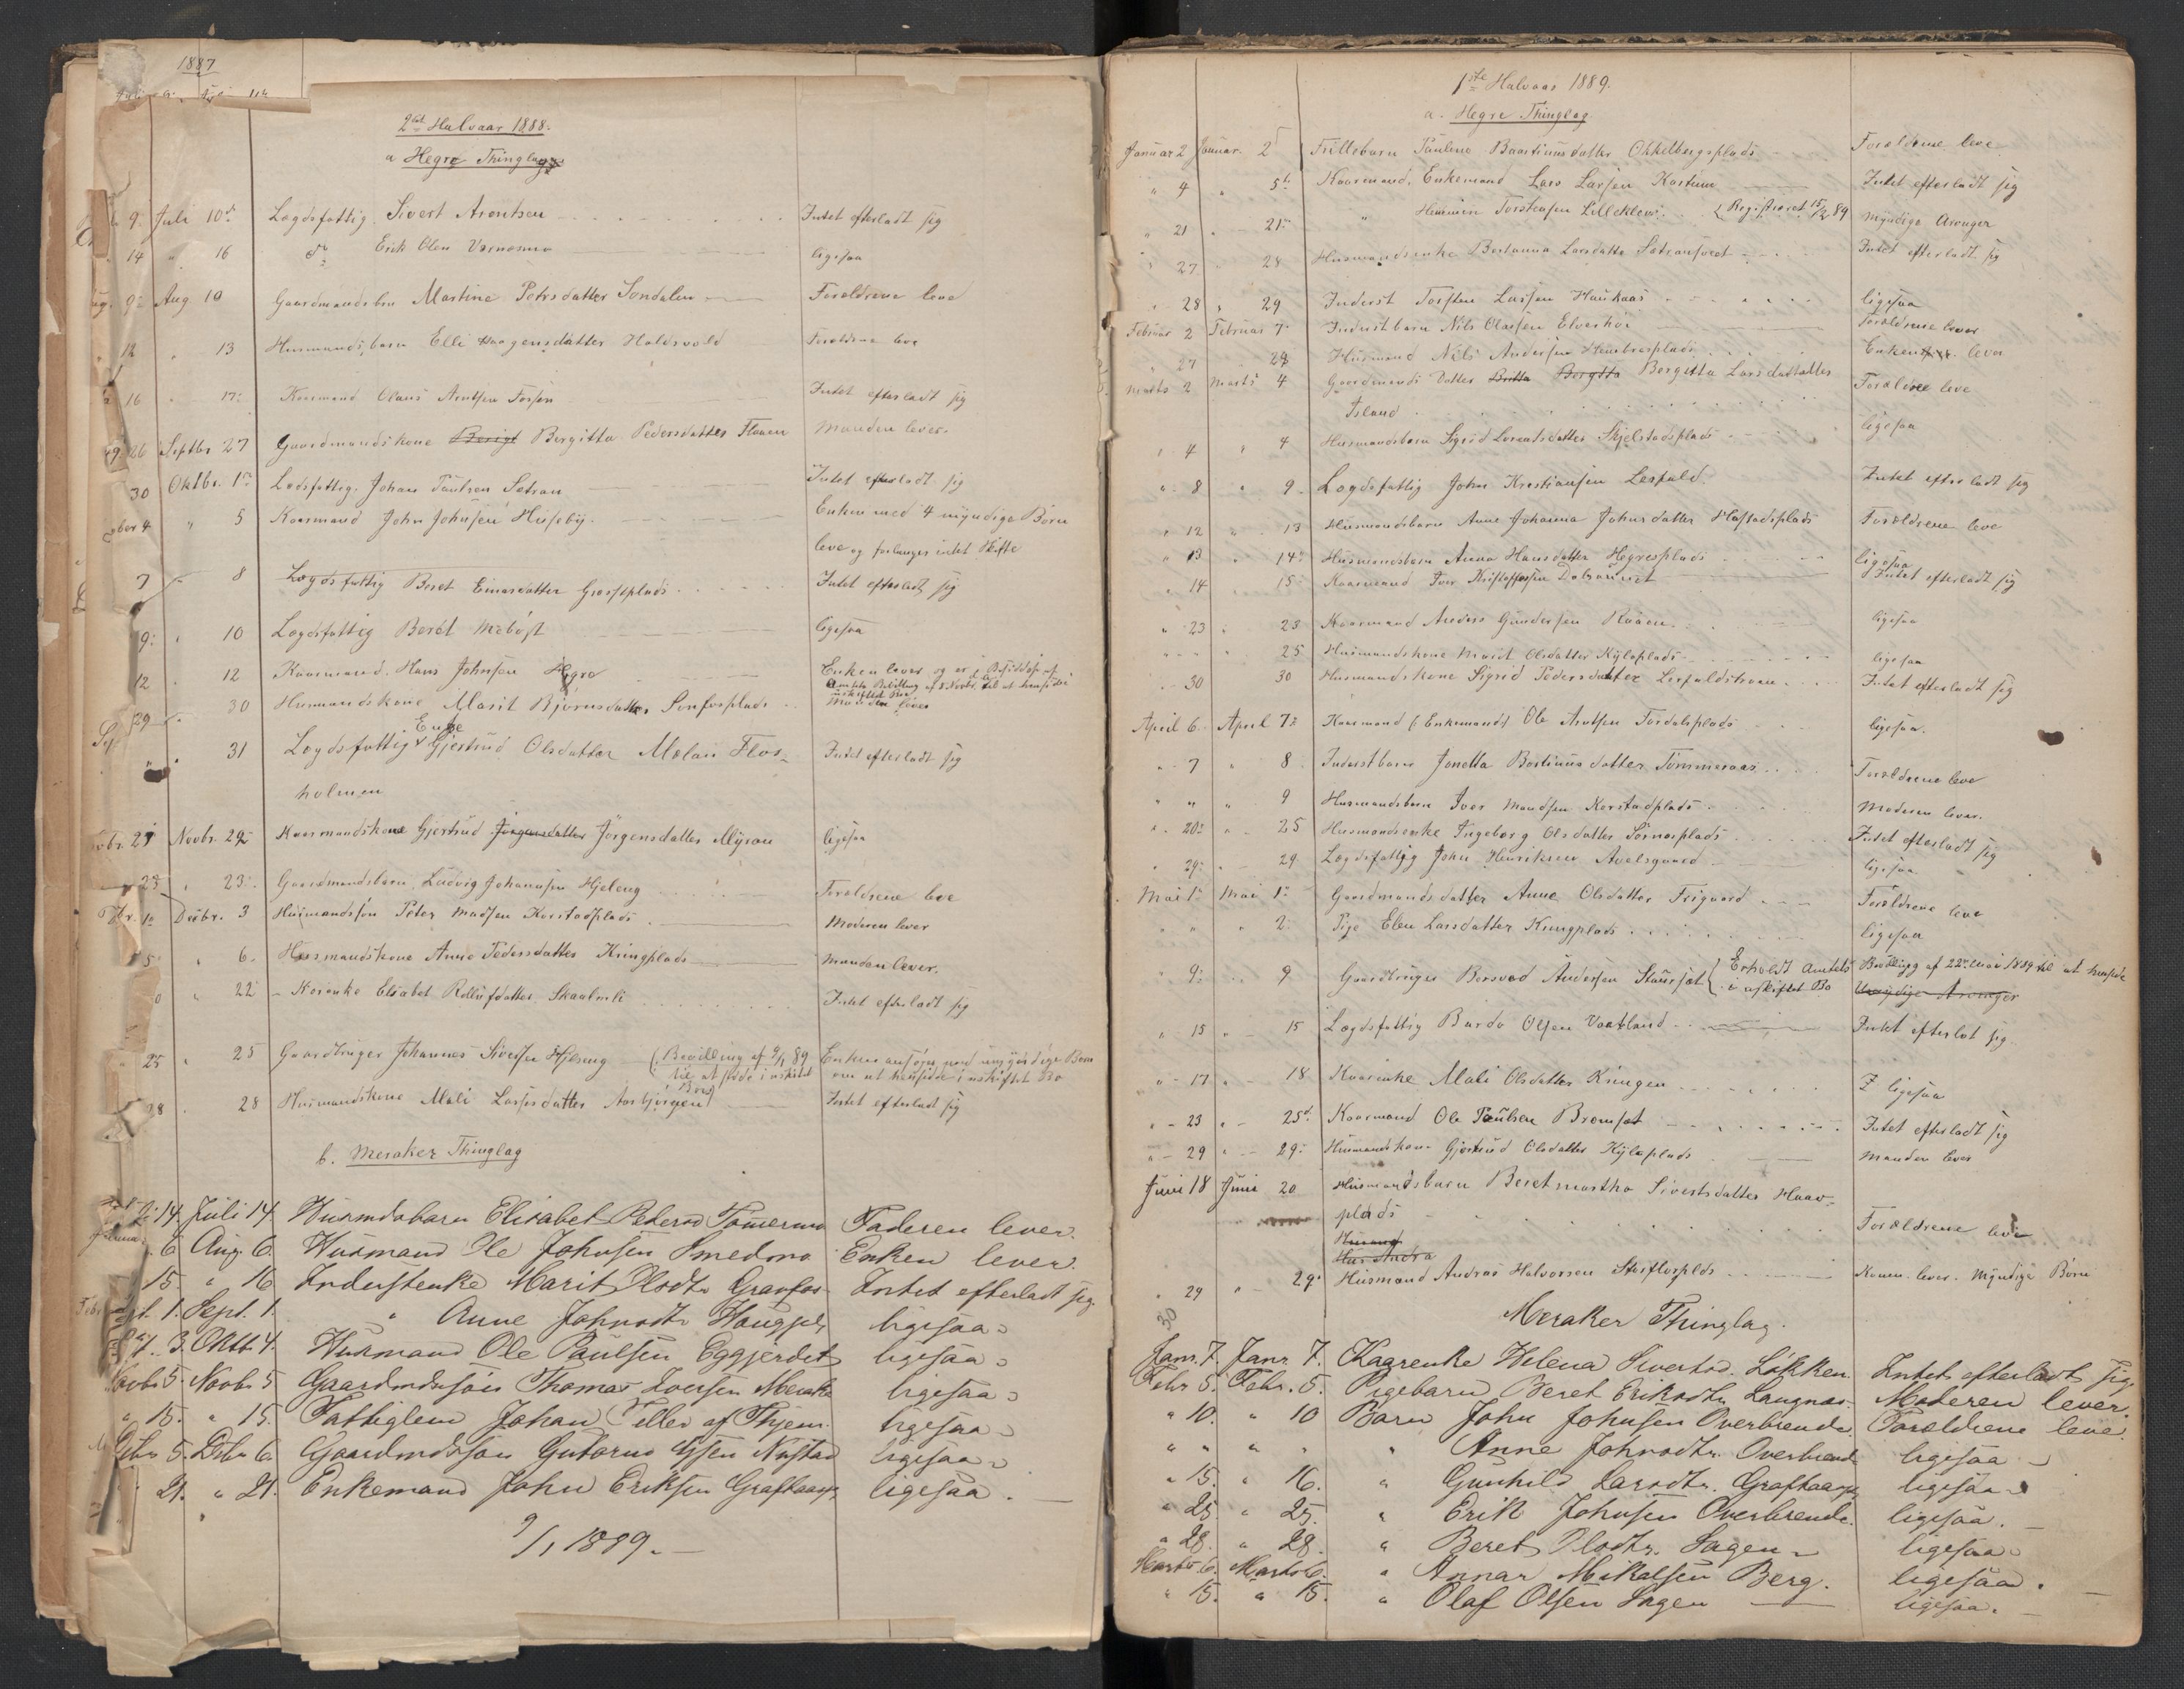 1887
2det Halvaar 1888.
a Hegre Thinglag
9. Juli 10de Lægdsfattig. Sivert Arentsen Intet efterladt sig
14 " 16 do Erik Olsen Værnesmo ligesaa
9 Aug. 10 Gaardmandsbrn Martine Petersdatter Sondalen Foreldrene leve
12 " 13 Husmandsbarn Elli Haagensdatter Holdsvold Foreldrene leve
16 " 17 Kaarmand Olaus Arntsen Fossen Intet efterladt sig
26 Septbr 27 Gaardmandskone Berigt Bergitta Pedersdatter Flaaen Manden lever.
30 Oktbr. 1 Lædsfattig. Johan Paulsen Setran Intet efterladt sig
4 " 5 Kaarmand John Johnsen Huseby. Enken med 4 myndige Børn
leve og forlanges intet Skifte
7 8 Lægdsfattig Beret Einarsdatter Græsliplads Intet efterladt sig
9 " 10 Lægdsfattig Beret Mebøst ligesaa
12 " 12 Kaarmand. Hans Johnsen Hegre Enken lever og er i Besiddelse af
Amtets Bevilling af 8 Novbr. til at hensidde
i uskiftet Bo
29 30 Husmandskone Marit Bjørnsdatter Sonfosplads Manden lever
Enke
" " 31 Lægdsfattig Gjertrud Olsdatter Mælan Flor- Intet efterladt sig
holmen
21 Novbr. 22 Kaarmandskone Gjertrud Jørgensdatter Jørgensdatter Myran ligesaa
23 " 23 Gaardmandsbarn Ludvig Johansen Hjelseng Foreldrene leve
1 Decbr. 3 Husmandssøn Peter Madsen Karstadplads Moderen lever
5 " 6. Husmandskone Anne Pedersdatter Kringplads Manden lever.
" 22 Kaarenke Elisabet Rollufsdatter Skaalmli Intet efterladt sig
25 " 25 Gaardbruger Johannes Sivertsen Hjelseng (Bevilling af 9/1 89 Enken ansøger med umyndige Børn
til at sidde i uskiftet om at hensidde i uskiftet Bo
Bo)
28 . 28 Husmandskone Mali Larsesdatter Aasbjørgen Intet efterladt sig
b. Meraker Thinglag
14. Juli 14. Husmdsbarn Elisabet Pedersd Tømmermo Faderen lever.
6 Aug. 6. Husmand Ole Johnsen Smedmo Enken lever.
15. " 16 Inderstenke Marit Olsdtr Granfos Intet efterladt sig.
1. Sept. 1. " Anne Johnsdtr Haugpl ligesaa
3. Oktb. 4. Husmand Ole Paulsen Eggjerdet ligesaa
Novbr 5. Novbr 5 Gaardmdssøn Thomas Iversen Merake ligesaa
" 15. " 15. Fattiglem Johan Teller af Thjem. ligesaa
Dcbr 5. Dcbr 6. Gaardmdssøn Gutorm Olsen Nustad ligesaa
21. " 21. Enkemand John Eriksen Grafkaaspl ligesaa.
9/1 1889.
1ste Halvaar 1889.
a. Hegre Thinglag
Januar 2 Januar. 2 Frillebarn Pauline Baartinusdatter Okkelbergsplads Foreldrene leve
" 4 " 5te Kaarmand, Enkemand Lars Larsen Kastum Intet efterladt sig
" 21 " 21de " Henrien Torstensen Lilleklev. (Registreret 15/2 89 Myndige Arvinger
" 27 " 28 Husmandsenke Berhanna Larsdatter Sætransvedt Intet efterladt sig
" 28 " 29 Inderst Torsten Larsen Haukaas ligesaa
Februar 2 Februar 7. Inderstbarn Nils Olausen Elverhøi Foreldrene lever
" 27 28 Husmand Nils Andersen Hembresplads Enken lever
Marts 2 Marts 4 Gaardmands Datter Britta Bergitta Bergitta Larsdattatter Foreldree leve
Island
" 4 " 4 Husmandsbarn Sigrid Lorentsdatter Skjelstadsplads ligesaa
" 8 " 9. Lægdsfattig John Kristiansen Leefald Intet efterladt sig
" 12 " 13 Husmandsbarn Anne Johanna Johnsdatter Hastadsplads Foreldrene leve
" 13 " 14 Husmandsbarn Anna Hansdatter Hegresplads ligesaa
" 14 15 Kaarmand Iver Kristoffersen Dalsaunet Intet efterladt sig
" 23 " 23 Kaarmand Anders Gundersen Raaen ligesaa
" " " 25 Husmandskone Marit Olsdatter Kyloplads ligesaa
" 30 30 Husmandskone Sigrid Pedersdatter Leefaldstrøen Intet efterladt sig
April 6. April 7 Kaarmand (Enkemand) Ole Arntsen Fordalsplads ligesaa.
" 7 " 8 Inderstbarn Jonetta Bartinusdatter Tømmeraas Foreldrene leve
" " " 9 Husmandsbarn Iver Mandsen Kerstadplads Moderen lever.
" 20 " 25 Husmandsenke Ingeborg Olsdatter Sørnesplads Intet efterladt sig
" 29 " 29 Lægdsfattig John Henriksen Avelsgaard ligesaa
Mai 1 Mai 1 Gaardmandsdatter Anne Olsdatter Trøgaard Foreldrene leve
" " " 2 Pige Elen Larsdatter Kringplads ligesaa
" 9 " 9 Gaardbruger Baarod Andersen Stuesæt (Erholdt Amtets Bevilling af 22de Mai 1889 til at hensidde
i uskiftet Bo Umyndige Arvinger
" 15 " 15 Lægdsfattig Bardo Olsen Vaatland Intet efterlat sig
" 17 " 18 Kaarenke Mali Olsdatter Kringen ligesaa
" 23 " 25d. Kaarmand Ole Paulsen Bremset Intet efterladt sig
" 29 " 29. Husmandskone Gjertrud Olsdatter Kyloplads Manden lever
Juni 18 Juni 20 Husmandsbarn Beretmartha Sivertsdatter Haav-
plads Foreldrene leve
Husmand
Hus Andra
" 29 " 29. Husmand Andras Halvorsen Storflorplds Konen lever. Myndige Børn
30
Meraker Thinglag.
Janr. 7. Janr 7. Kaarenke Helena Sivertsd. Løkken. Intet efterladt sig
Febr 5. Febr. 5. Pigebarn Beret Eriksdtr Langnæs. Moderen lever.
" 10. " 10 Barn John Johnsen Overbrende Foreldrene leve.
" " " " " Anne Johnsdtr. Overbrende ligesaa
" 15. " 16. " Gunhild Larsdtr. Grafkaaspl ligesaa
" 25 " 25. " Erik Johnsen Overbrende ligesaa.
" 28. " 28. " Beret Olsdtr. Sagen ligesaa
Marts 6. Marts 6. " Annar Mikalsen Berg. ligesaa.
" 15. " 15. " Olaf Olsen Sagen ligesaa.